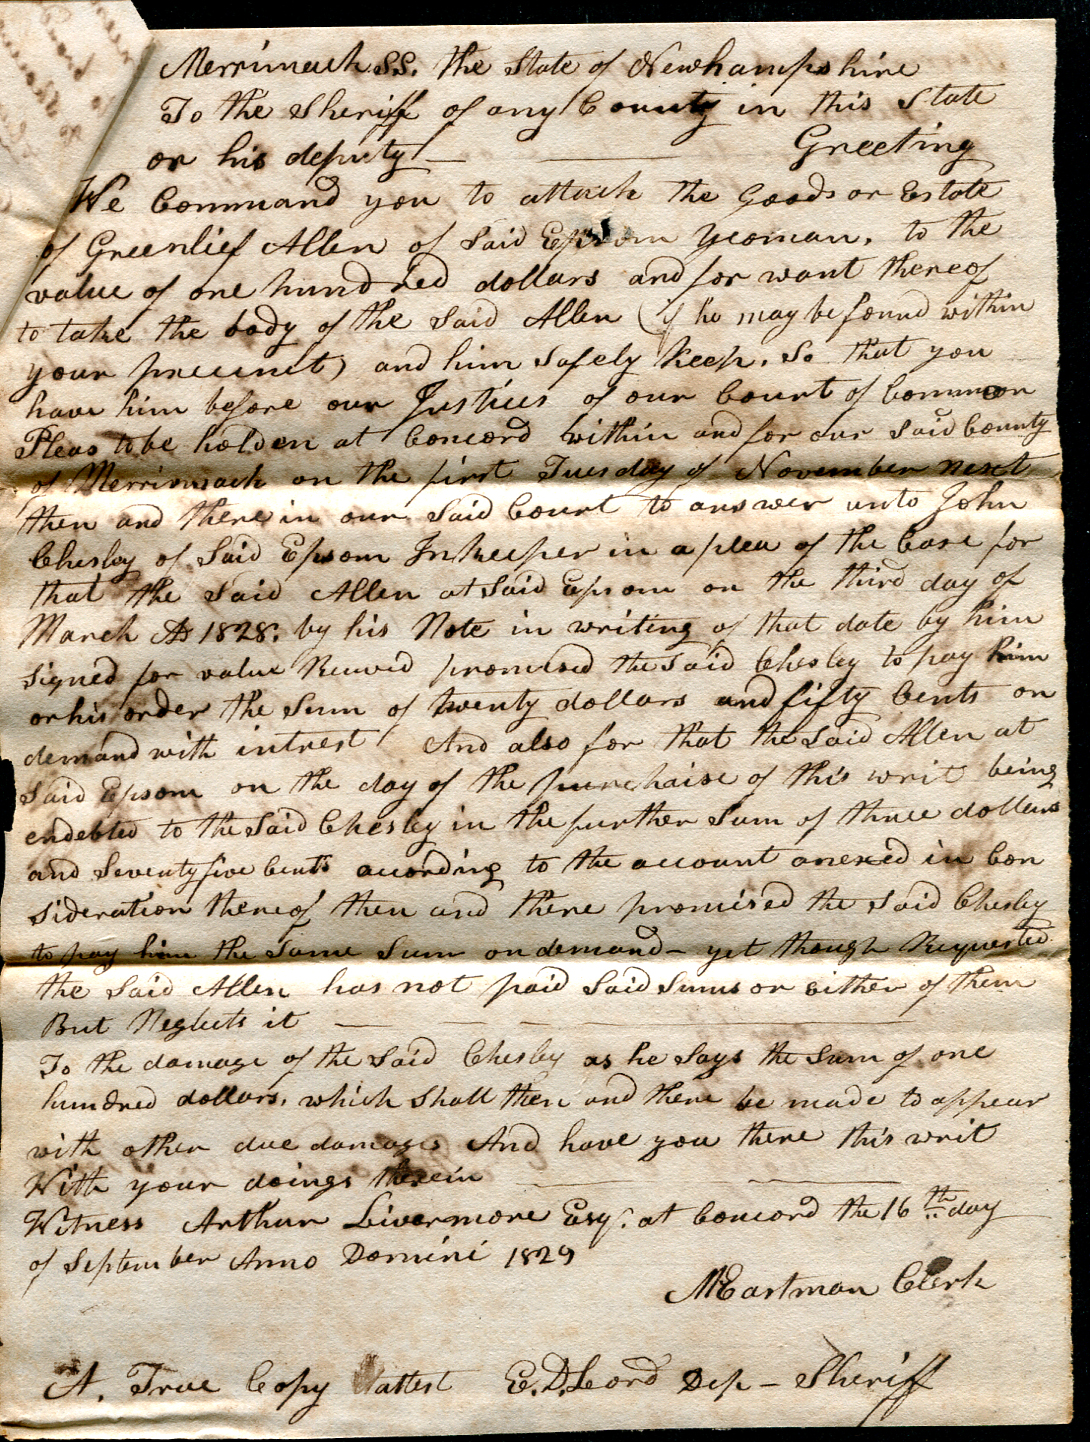 Merrimack SS. the State of Newhampshire
To the Sheriff of any County in this State
or his deputy — — Greeting
We Command you to attach the Goods or Estate
of Greenlief Allen of Said Epsom yeoman, to the
value of one hundred dollars and for want thereof
to take the body of the Said Allen (if he may be found within
your precinct) and him Safely Keep. So that you
have him before our Justices of our Court of Common
Pleas to be holden at Concord within and for our Said County
of Merrimack on the first Tuesday of November next
then and there in our Said Court to answer unto John
Chesley of Said Epsom Inkeeper in a plea of the Case for
that the Said Allen at Said Epsom on the third day of
March AD 1828. by his Note in writing of that date by him
Signed for value Received promised the Said Chesley to pay him
or his order the Sum of twenty dollars and fifty Cents on
demand with intrest And also for that the Said Allen at
Said Epsom on the day of the purchaise of this writ being
endebted to the Said Chesley in the further Sum of three dollars
and Seventy five Cents according to the account anexed in Con
sideration thereof then and there promised the Said Chesley
to pay him the Same Sum on demand – yet though Requested
the Said Allen has not paid Said Sums or either of them
But Neglects it — — —
To the damage of the Said Chesley as he Says the Sum of one
hundred dollars, which Shall then and there be made to appear
with other due damages And have you there this writ
With your doings therein — —
Witness Arthur Livermore Esq. at Concord the 16th day
of September Anno Domini 1829
M Eastman Clerk
A. True Copy attest E. D. Leord Dep – Sheriff